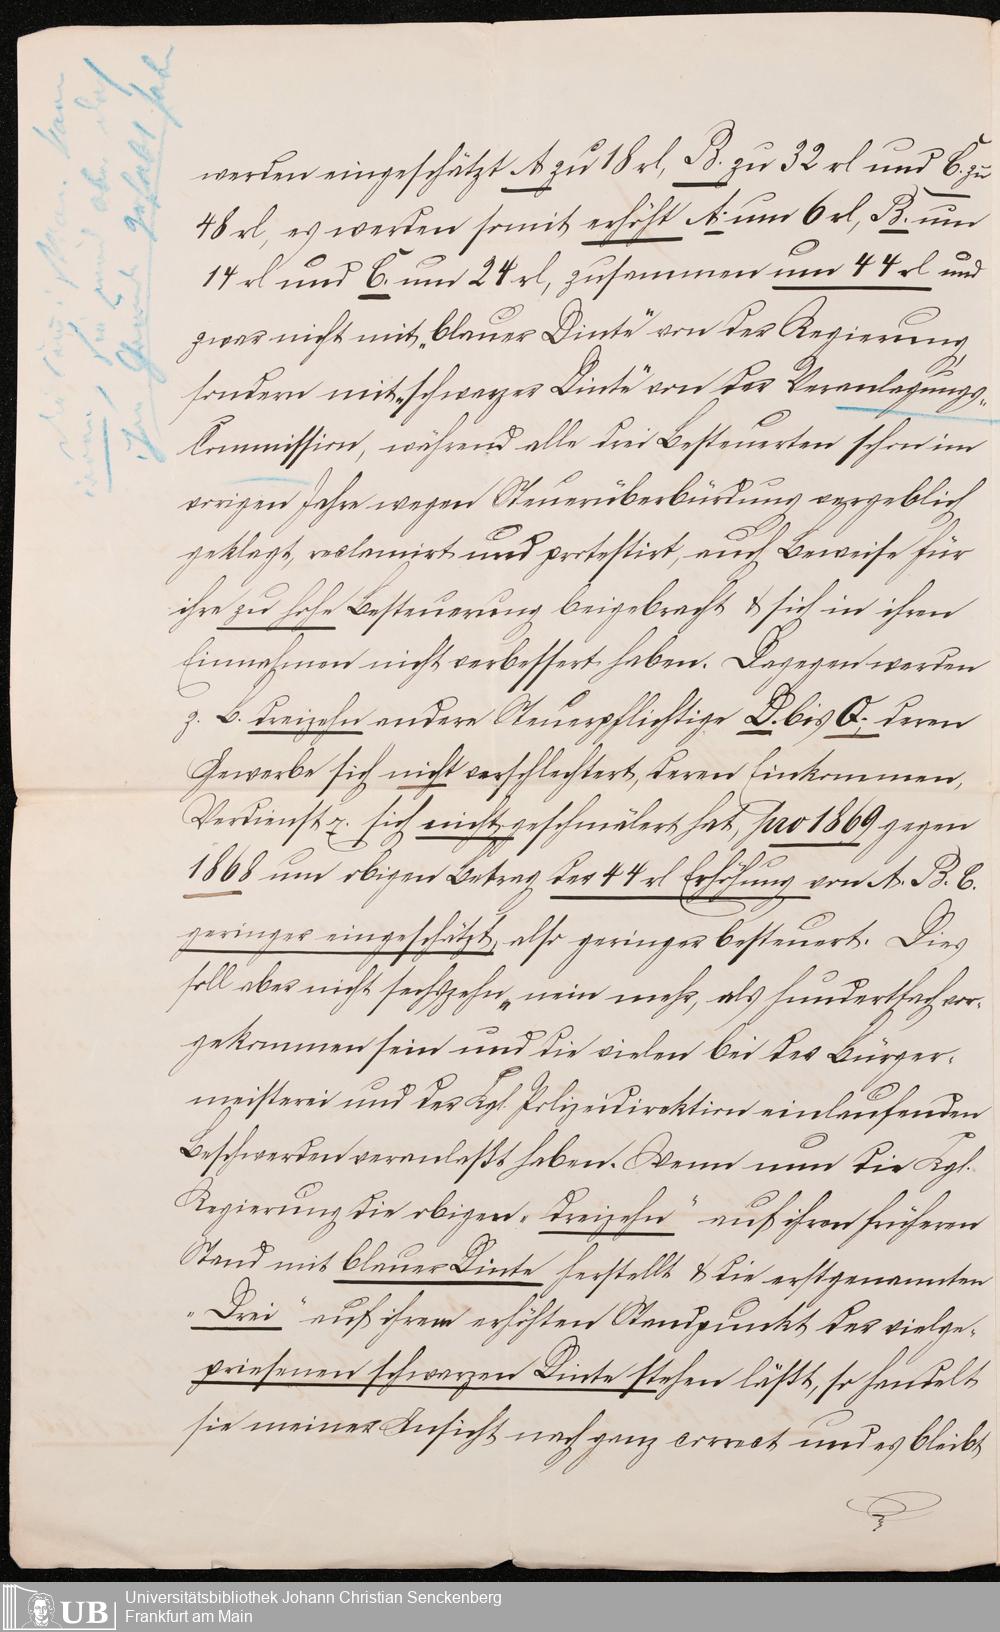 werden eingeschätzt A zu 18 rl, B. zu 32 rl und C. zu
48 rl, es werden somit erhöht A. um 6 rl, B. um
14 rl und C. um 24 rl, zusammen um 44 rl und
zwar nicht mit „blauer Dinte“ von der Regierung,
sondern mit „schwarzer Dinte“ von der Veranlagungs-
Commission, während alle drei Besteuerten schon im
vorigen Jahre wegen Steuerüberbürdung vergeblich
geklagt, reclamirt und protestirt, auch Beweise für
ihre zu hohe Besteuerung beigebracht & sich in ihren
Einnahmen nicht verbessert haben. Dagegen werden
z. B. dreizehn andere Steuerpflichtige D. bis Q., deren
Gewerbe sich nicht verschlechtert, deren Einkommen,
Verdienst z. sich nicht geschmälert hat, pro 1869 gegen
1868 um obigen Betrag der 44 rl Erhöhung von A. B. C.
geringer eingeschätzt, also geringer besteuert. Dies
soll aber nicht sechszehn, nein mehr, als hundertfach vor-
gekommen sein und die vielen bei der Bürger-
meisterei und der Kgl. Polizeidirektion einlaufenden
Beschwerden veranlaßt haben. Wenn nun die Kgl.
Regierung die obigen „dreizehn“ auf ihren früheren
Stand mit blauer Dinte herstellt & die erstgenannten
„Drei“ auf ihrem erhöhten Standpunkt der vielge-
priesenen schwarzen Dinte stehen läßt, so handelt
sie meiner Ansicht nach ganz correct und es bleibt
Universitätsbibliothek Johann Christian Senckenberg
Frankfurt am Main
UB